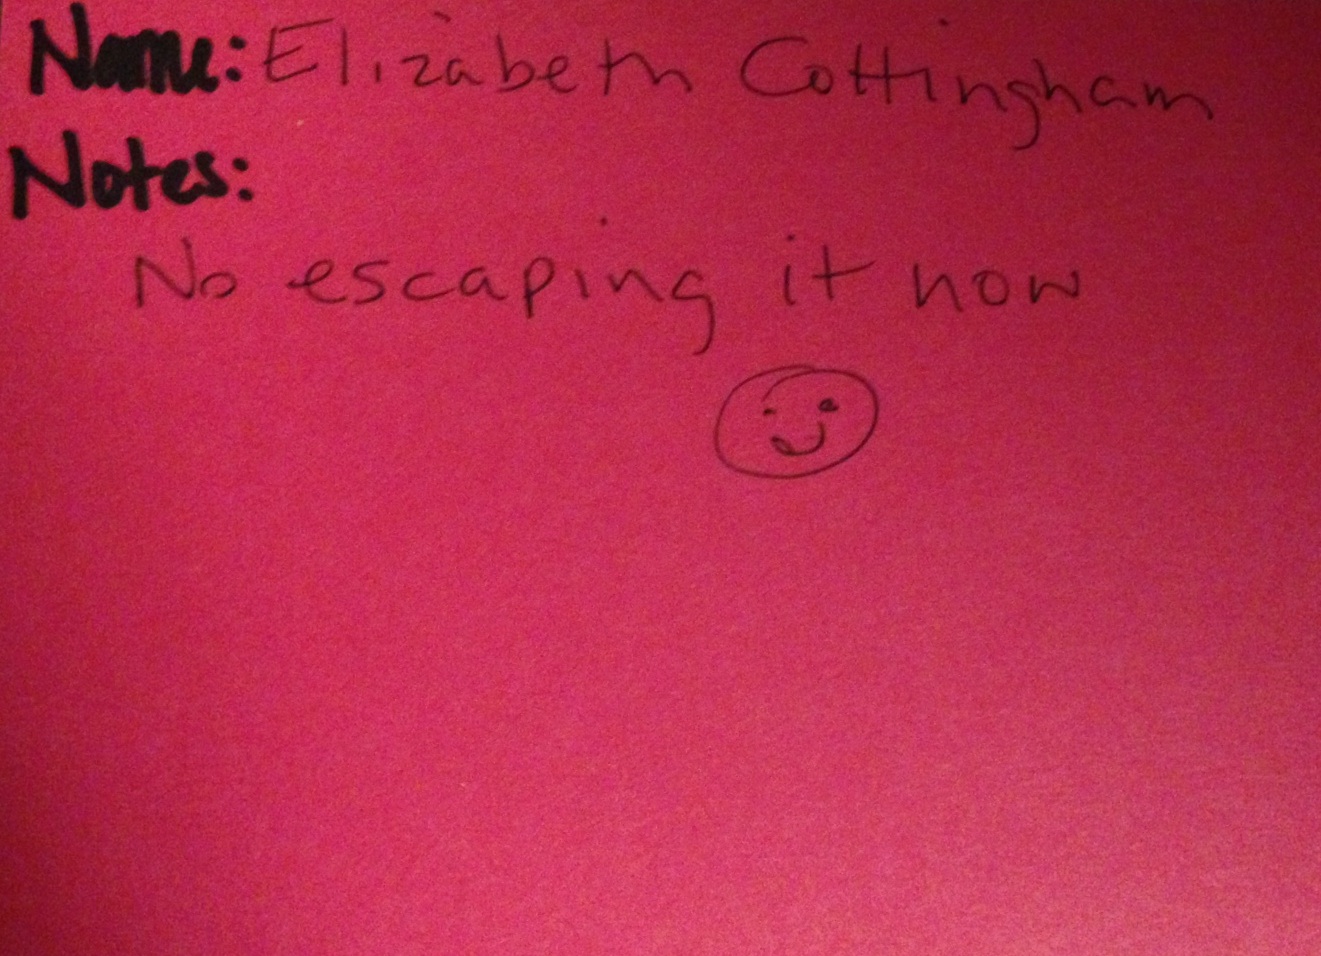 Name: Elizabeth Cottingham
Notes:
No escaping it now